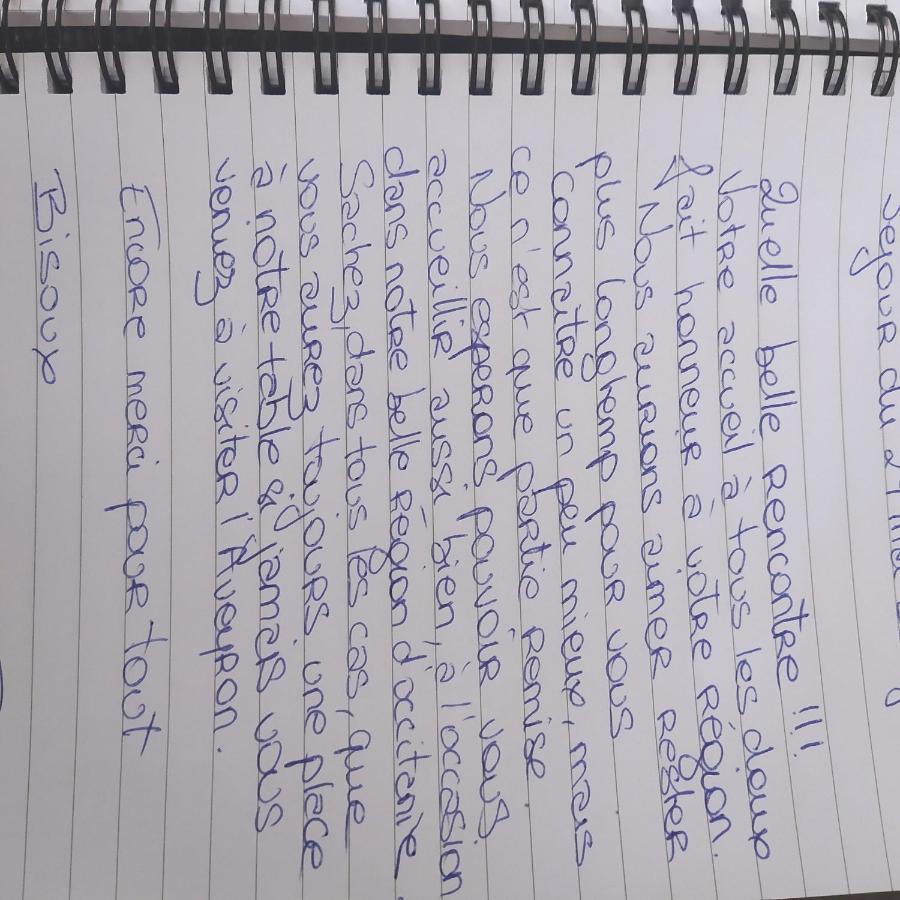 séjour du 21 mai
Quelle belle rencontre !!!
Votre accueil à tous les doux
fait honneur à vôtre région.
Nous aurions aimer rester
plus longtemp pour vous
connaître un peu mieux, mais
ce n'est que partie remise.
Nous espérons pouvoir vous
accueillir aussi bien, à l'occasion
dans nôtre belle région d'occitanie.
Sachez, dans tous les cas, que
vous aurez toujours une place
à nôtre table si jamais vous
venez à visiter l'Aveyron.
Encore merci pour tout
Bisoux